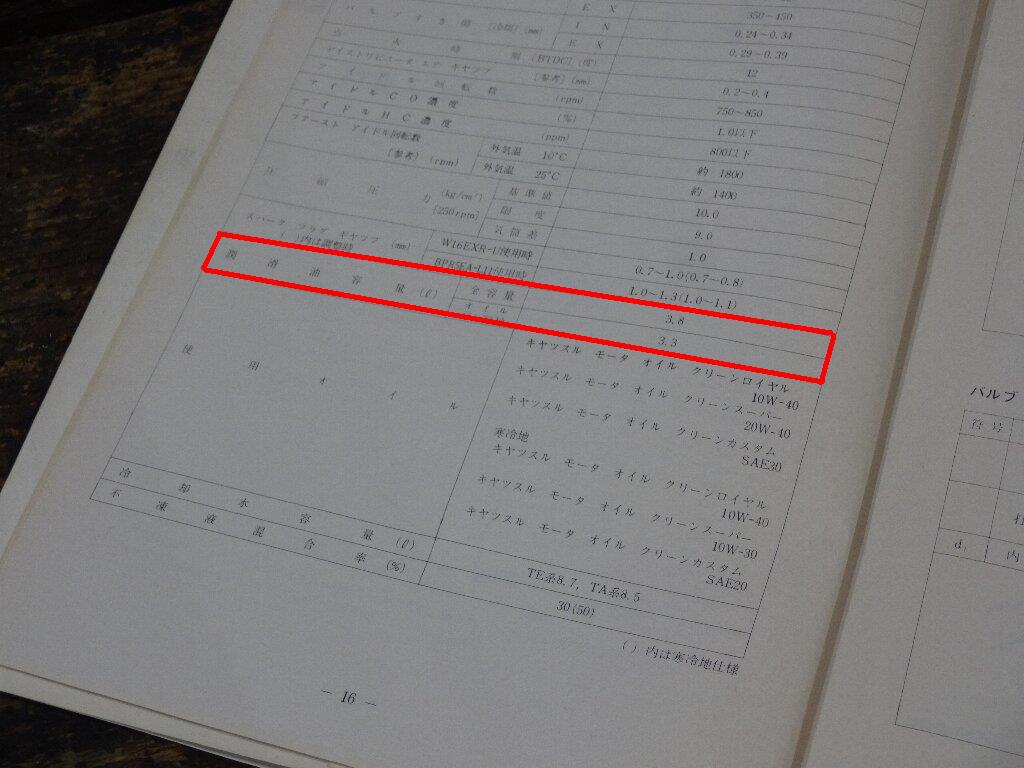 E X 350~450
バルブすき間 (冷間) (mm) I N 0.24~0.34
E X 0.29~0.39
点火時期 (BTDC) (度) 12
ディストリビュータ エア ギャップ [参考] (mm) 0.2~0.4
アイドル回転数 (rpm) 750~850
アイドルCO濃度 (%) 1.0以下
アイドルHC濃度 (ppm) 800以下
ファースト アイドル回転数 外気温 10°C 約 1800
[参考] (rpm) 外気温 25°C 約 1400
圧縮圧力 (kg/cm²) 基準値 10.0
[250rpm] 限度 9.0
気筒差 1.0
スパーク プラグ ギャップ (mm) W16EXR-U使用時 0.7~1.0(0.7~0.8)
( )内は調整時 BPR5EA-L11使用時 1.0~1.3(1.0~1.1)
潤滑油容量 (ℓ) 全容量 3.8
オイル 3.3
使用オイル
キヤッスル モータ オイル クリーンロイヤル
10W-40
キヤッスル モータ オイル クリーンスーパー
20W-40
キヤッスル モータ オイル クリーンカスタム
SAE30
寒冷地
キヤッスル モータ オイル クリーンロイヤル
10W-40
キヤッスル モータ オイル クリーンスーパー
10W-30
キヤッスル モータ オイル クリーンカスタム
SAE20
冷却水容量 (ℓ) TE系8.7, TA系8.5
不凍液混合率 (%) 30(50)
( ) 内は寒冷地仕様
— 16 —
バルブ
符号
d₁ 内